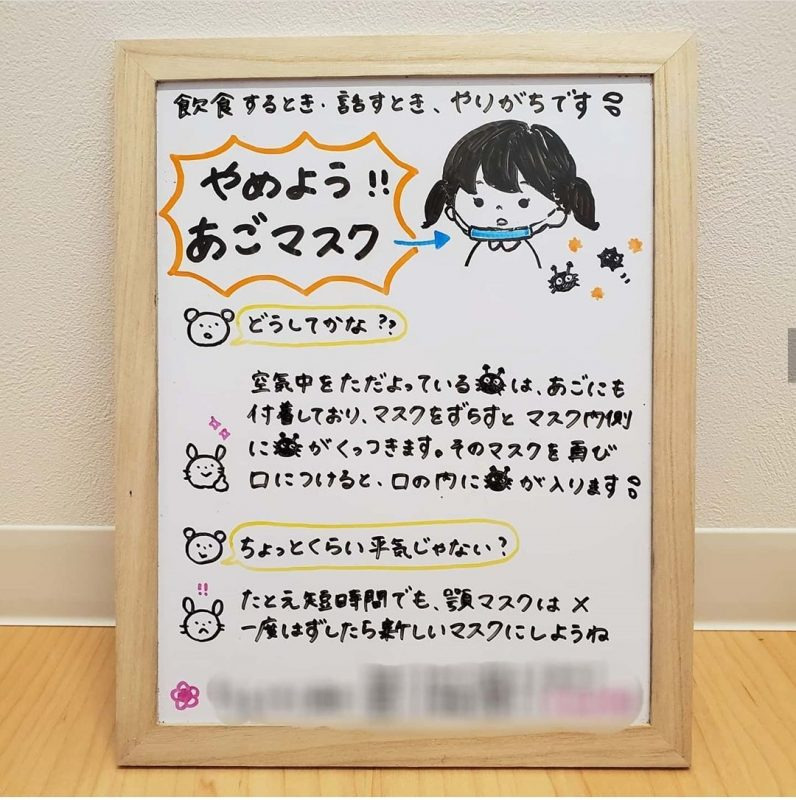 飲食するとき・話すとき、やりがちです。
やめよう!!
あごマスク
どうしてかな??
空気中をただよっているは、あごにも
付着しており、マスクをずらすとマスク内側
にがくっつきます。そのマスクを再び
口につけると、口の内にが入ります。
ちょっとくらい平気じゃない?
!!
たとえ短時間でも、顎マスクは×
一度はずしたら新しいマスクにしようね